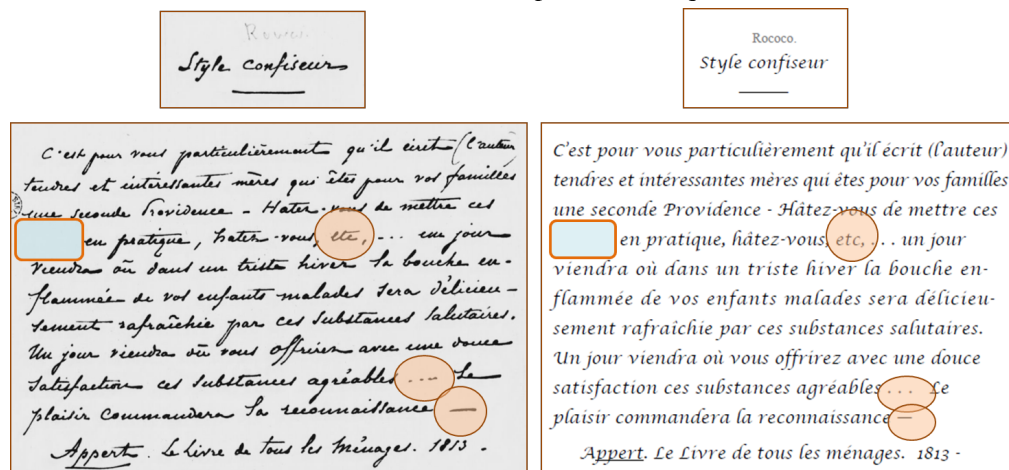 Style confiseur
C'est pour vous particulièrement qu'il écrit (l'auteur
tendres et intéressantes mères qui êtes pour vos familles
une seconde Providence - Hâtez-vous de mettre ces
en pratique, hâtez-vous, etc, ... un jour
viendra où dans un triste hiver la bouche en-
flammée de vos enfants malades sera délicieu-
sement rafraîchie par ces substances salutaires.
Un jour viendra où vous offrirez avec une douce
satisfaction ces substances agréables .... Le
plaisir commandera la reconnaissance —
Appert. Le Livre de tous les Ménages. 1813 -
Rococo.
Style confiseur
C'est pour vous particulièrement qu'il écrit (l'auteur)
tendres et intéressantes mères qui êtes pour vos familles
une seconde Providence - Hâtez-vous de mettre ces
en pratique, hâtez-vous, etc, . . . un jour
viendra où dans un triste hiver la bouche en-
flammée de vos enfants malades sera délicieu-
sement rafraîchie par ces substances salutaires.
Un jour viendra où vous offrirez avec une douce
satisfaction ces substances agréables . . . Le
plaisir commandera la reconnaissance —
Appert. Le Livre de tous les ménages. 1813 -